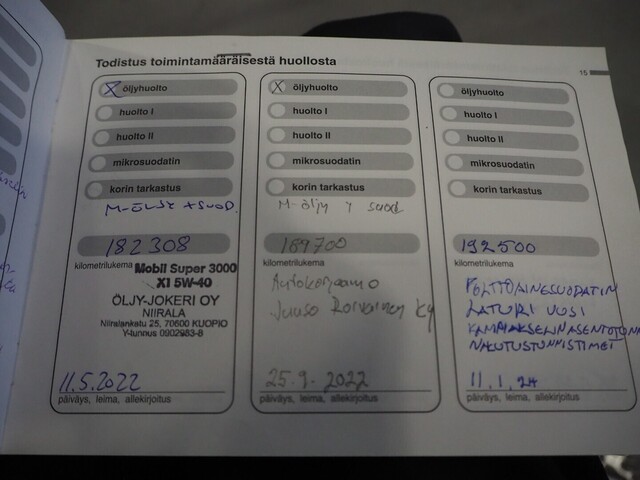 Todistus toimintamääräisestä huollosta
15
X öljyhuolto
huolto I
huolto II
mikrosuodatin
korin tarkastus
M-ÖLJY + SUOD.
182 308
kilometrilukema
Mobil Super 3000
XI 5W-40
ÖLJY-JOKERI OY
NIIRALA
Niiralankatu 25, 70600 KUOPIO
Y-tunnus 0902983-8
11.5.2022
päiväys, leima, allekirjoitus
X öljyhuolto
huolto I
huolto II
mikrosuodatin
korin tarkastus
M-öljy + suod
189700
kilometrilukema
Autokorjaamo
Juuso Ky
25.9.2022
päiväys, leima, allekirjoitus
öljyhuolto
huolto I
huolto II
mikrosuodatin
korin tarkastus
192500
kilometrilukema
POLTTOAINESUODATIN
LATURI UUSI
NAKUTUSTUNNISTIMET
11.1.24
päiväys, leima, allekirjoitus